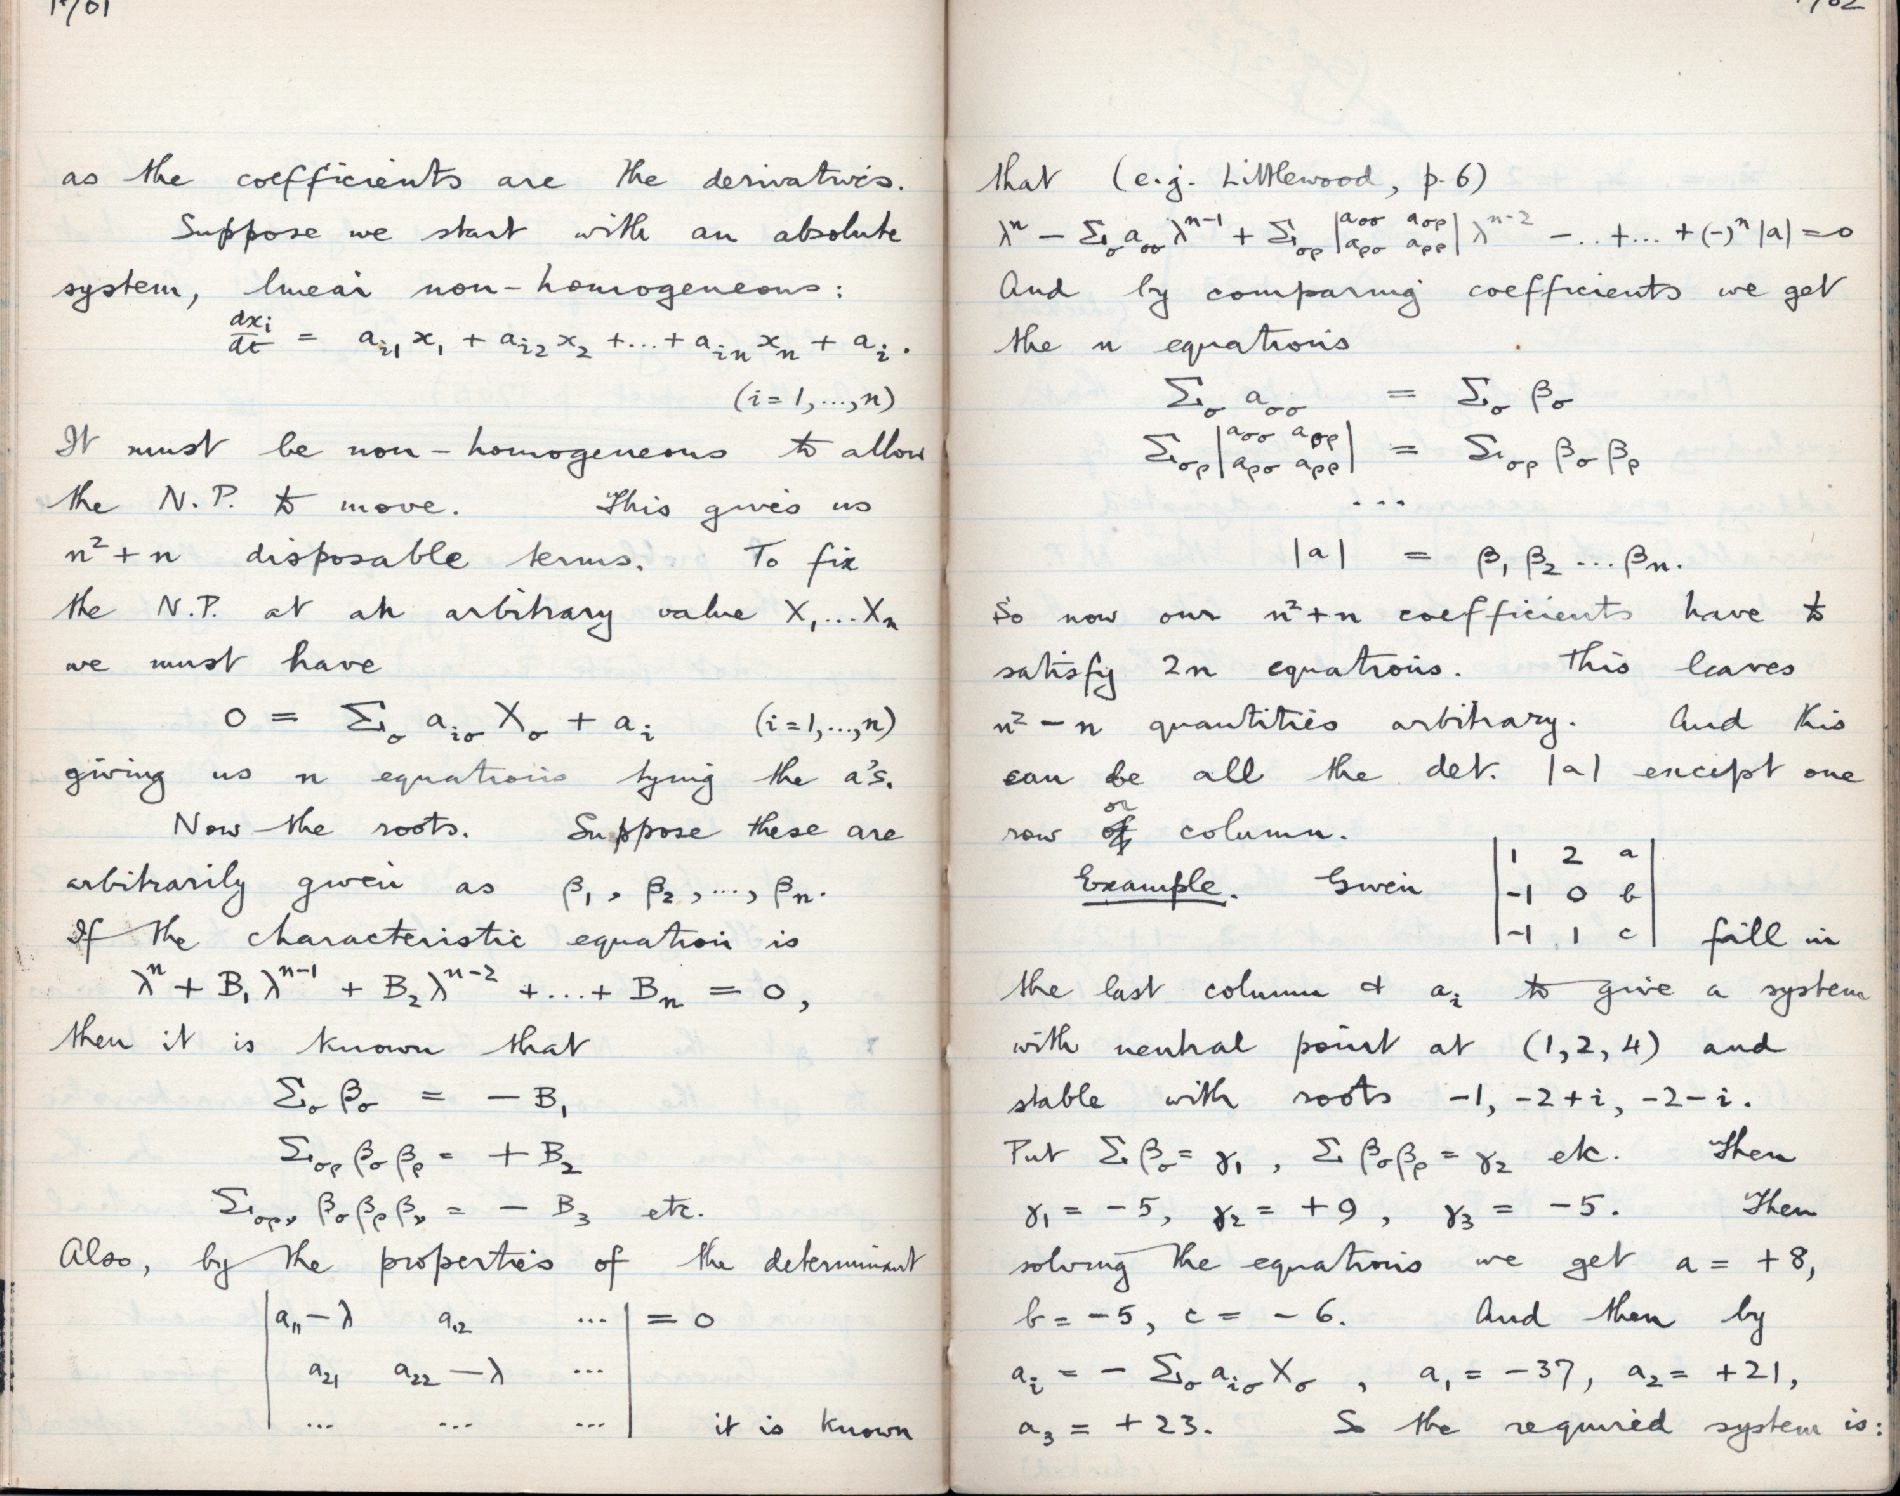 as the coefficients are the derivatives.
Suppose we start with an absolute
system, linear non-homogeneous:
dxi/dt = ai1 x1 + ai2 x2 +...+ ain xn + ai.
(i=1,...,n)
It must be non-homogeneous to allow
the N.P. to move. This gives us
n²+n disposable terms. To fix
the N.P. at an arbitrary value X1...Xn
we must have
0 = Σσ aiσ Xσ + ai (i=1,...,n)
giving us n equations tying the a's.
Now the roots. Suppose these are
arbitrarily given as β1, β2, ..., βn.
If the characteristic equation is
λⁿ + B1 λⁿ⁻¹ + B2 λⁿ⁻² +...+ Bn = 0,
then it is known that
Σσ βσ = - B1
Σσρ βσ βρ = + B2
Σσρν βσ βρ βν = - B3 etc.
Also, by the properties of the determinant
|a11-λ a12 ...| = 0
|a21 a22-λ ...|
|... ... ...| it is known
that (e.g. Littlewood, p. 6)
λⁿ - Σσ aσσ λⁿ⁻¹ + Σσρ |aσσ aσρ aρσ aρρ| λⁿ⁻² -..+...+(-)ⁿ |a| = 0
And by comparing coefficients we get
the n equations
Σσ aσσ = Σσ βσ
Σσρ |aσσ aσρ aρσ aρρ| = Σσρ βσ βρ
...
|a| = β1 β2 ... βn.
So now our n²+n coefficients have to
satisfy 2n equations. This leaves
n²-n quantities arbitrary. And this
can be all the det. |a| except one
row or column.
Example. Given
|1 2 a|
|-1 0 b|
|-1 1 c| fill in
the last column & ai to give a system
with neutral point at (1,2,4) and
stable with roots -1, -2+i, -2-i.
Put Σ βσ = γ1, Σ βσβρ = γ2 etc. Then
γ1 = -5, γ2 = +9, γ3 = -5. Then
solving the equations we get a = +8,
b = -5, c = -6. And then by
ai = - Σσ aiσ Xσ, a1 = -37, a2 = +21,
a3 = +23. So the required system is: